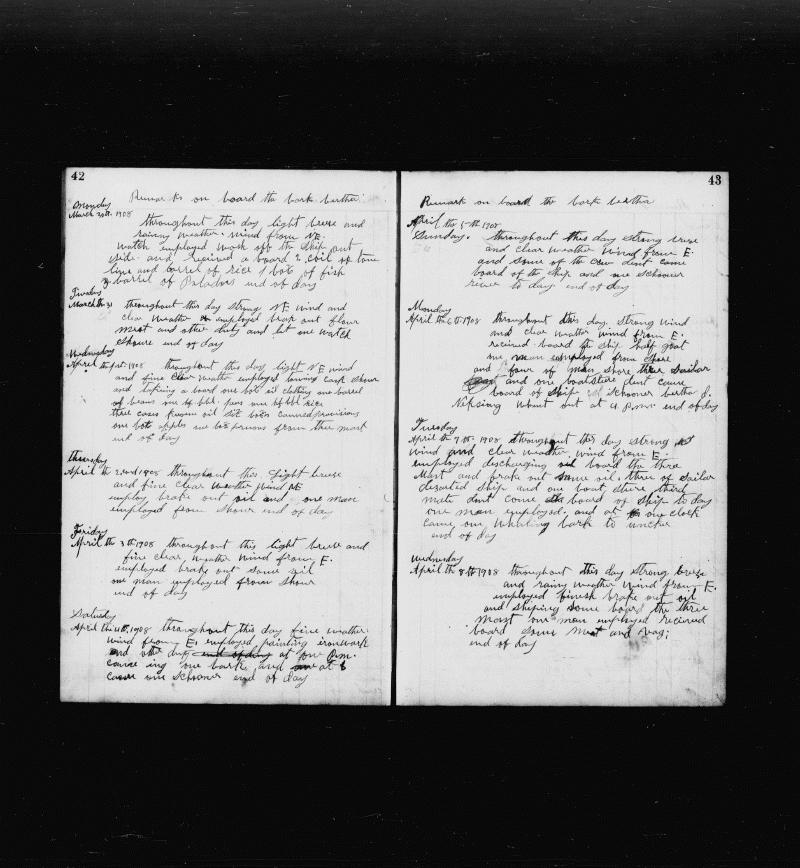 42
Remarks on board the bark bertha
Monday
March 30th 1908
throughout this day light breese and
raining weather. wind from NE.
watch employed work off the ship out
side and recived a board 2 coil of tow
line and barrel of rice 1 bots of fish
barrel of Potatoes end of day
March th 31
throughout this day strong NE wind and
clar weather employed brak out flour
meat and other duty and let one watch
shoure end of day
Wednesday
April th 1st 1908
throughout this day light NE wind
and fine clear weather employed towing cask shour
and taking a board one bots oil clothing one barrel
of beans one hf bbl. peas one hf bbl rice
three cases oil six boxs canned provisions
one bots apples one bots from thee mast
end of day
thursday
April th 2nd 1908 throughout this light breese
and fine clear weather wind NE
employ brake out oil and one man
employed from shour end of day
Friday
April th 3th 1908 throughout this light breese and
fine clear weather wind from E.
employed brake out some oil
one man employed from shour
end of day
Saturday
April th 4th 1908 throughout this day fine weather.
wind from E. employed painting ironwork
and other duty end of day at four P.m.
came ing one bark and at 8
came one schooner end of day
43
Remark on board the bark bertha
April th 5th 1908
Sunday. throughout this day strong breese
and clear weather wind from E.
and some of the crew dent come
board of the ship and one schooner
to day end of day
Monday
April th 6th 1908
throughout this day. strong wind
and clear weather wind from E.
recived board th ship half goat
one man employed from shore
and four of man shore three sailar
and one boatstire dent came
board of ship schooner bertha J.
went out at 4 P.m. end of day
Tuesday
April th 7th 1908 throughout this day strong
wind and clear weather, wind from E.
employed discharging oil board the three
Mast and brake out some oil. three of sailar
desarted ship and one boat stire third
mate dont come board of ship to day
one man employed, and at one clock
came one whaling bark to
end of day
wednesday
April th 8th 1908 throughout this day strong breese
and rainy weather wind from E.
employed finish brake out oil
and shiping some board the three
mast one man employed recived
board some meat and
end of day